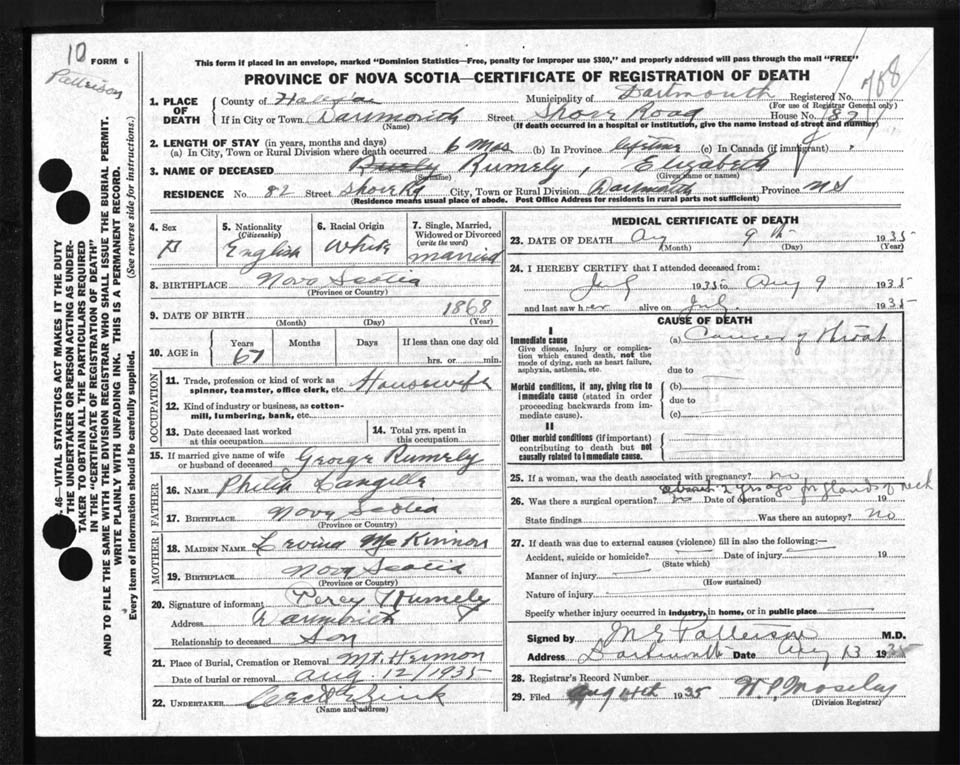 10
FORM 6
Patterson
This form if placed in an envelope, marked "Dominion Statistics—Free, penalty for improper use $300," and properly addressed will pass through the mail "FREE"
PROVINCE OF NOVA SCOTIA—CERTIFICATE OF REGISTRATION OF DEATH
768
1. PLACE OF DEATH
County of Halifax Municipality of Dartmouth Registered No.
(For use of Registrar General only)
If in City or Town Dartmouth Street Shore Road House No. 82
(Name) (If death occurred in a hospital or institution, give the name instead of street and number)
2. LENGTH OF STAY (in years, months and days)
(a) In City, Town or Rural Division where death occurred 6 mos (b) In Province lifetime (c) In Canada (if immigrant)
3. NAME OF DECEASED Rumely, Elizabeth
(Surname) (Given name or names)
RESIDENCE No. 82 Street Shore Rd City, Town or Rural Division Dartmouth Province N S
(Residence means usual place of abode. Post Office Address for residents in rural parts not sufficient)
P. 46—VITAL STATISTICS ACT MAKES IT THE DUTY
OF THE UNDERTAKER OR PERSON ACTING AS UNDER-
TAKER TO OBTAIN ALL THE PARTICULARS REQUIRED
IN THE "CERTIFICATE OF REGISTRATION OF DEATH"
AND TO FILE THE SAME WITH THE DIVISION REGISTRAR WHO SHALL ISSUE THE BURIAL PERMIT.
WRITE PLAINLY WITH UNFADING INK. THIS IS A PERMANENT RECORD.
Every item of information should be carefully supplied. (See reverse side for instructions.)
4. Sex
F
5. Nationality
(Citizenship)
English
6. Racial Origin
White
7. Single, Married,
Widowed or Divorced
(write the word)
married
8. BIRTHPLACE Nova Scotia
(Province or Country)
9. DATE OF BIRTH 1868
(Month) (Day) (Year)
10. AGE in
Years Months Days If less than one day old
67 hrs. or min.
OCCUPATION
11. Trade, profession or kind of work as
spinner, teamster, office clerk, etc. Housewife
12. Kind of industry or business, as cotton-
mill, lumbering, bank, etc.
13. Date deceased last worked
at this occupation
14. Total yrs. spent in
this occupation
15. If married give name of wife
or husband of deceased George Rumely
FATHER
16. NAME Philip Langille
17. BIRTHPLACE Nova Scotia
(Province or Country)
MOTHER
18. MAIDEN NAME McKinnon
19. BIRTHPLACE Nova Scotia
(Province or Country)
20. Signature of informant Percy Rumely
Address Dartmouth
Relationship to deceased Son
21. Place of Burial, Cremation or Removal Mt. Hermon
Date of burial or removal Aug. 12/1935
22. UNDERTAKER
(Name and address)
MEDICAL CERTIFICATE OF DEATH
23. DATE OF DEATH Aug 9th 1935
(Month) (Day) (Year)
24. I HEREBY CERTIFY that I attended deceased from:
July 1935 to Aug 9 1935
and last saw her alive on July 1935
CAUSE OF DEATH
I
Immediate cause
Give disease, injury or complica-
tion which caused death, not the
mode of dying, such as heart failure,
asphyxia, asthenia, etc.
(a) Cancer of throat
due to
Morbid conditions, if any, giving rise to
immediate cause (stated in order
proceeding backwards from im-
mediate cause).
(b)
due to
(c)
II
Other morbid conditions (if important)
contributing to death but not
causally related to immediate cause.
25. If a woman, was the death associated with pregnancy? no
about 2 yrs ago for glands of neck
26. Was there a surgical operation? no Date of operation 19
State findings Was there an autopsy? no
27. If death was due to external causes (violence) fill in also the following:—
Accident, suicide or homicide? Date of injury 19
(State which)
Manner of injury
(How sustained)
Nature of injury
Specify whether injury occurred in industry, in home, or in public place
Signed by M E Patterson M.D.
Address Dartmouth Date Aug 13 1935
28. Registrar's Record Number
29. Filed Aug 14th 1935 W P Moseley
(Division Registrar)